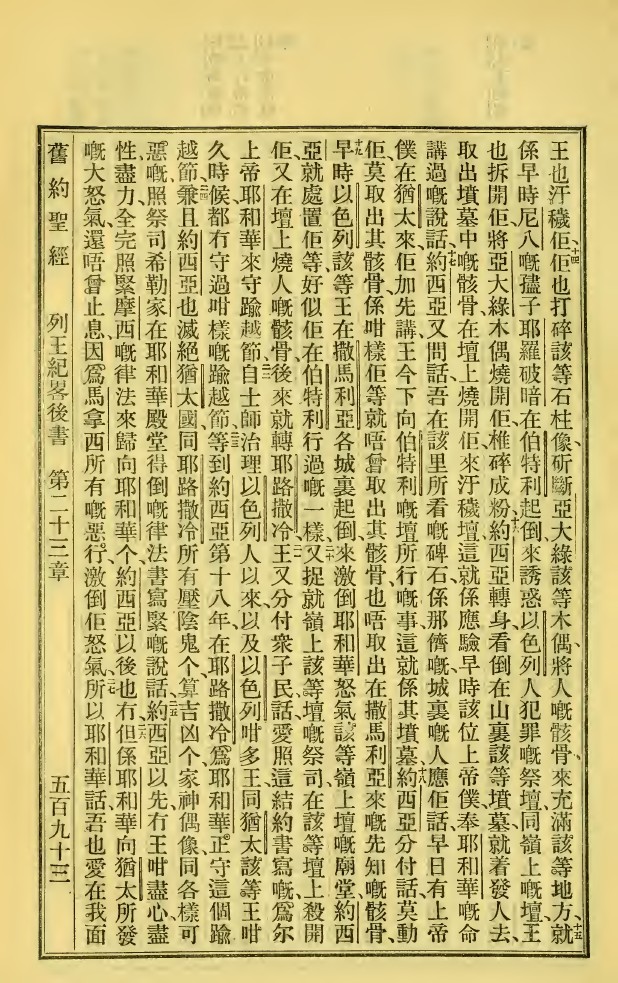 王也汙穢佢佢也打碎該等石柱像斫斷亞大綠該等木偶將人嘅骸骨來充滿該等地方就
係早時尼八嘅孻子耶羅破暗在伯特利起倒來誘惑以色列人犯罪嘅祭壇同嶺上嘅壇王
也拆開佢將亞大綠木偶燒開佢椎碎成粉約西亞轉身看倒在山裏該等墳墓就着發人去
取出墳墓中嘅骸骨在壇上燒開佢來汙穢壇這就係應驗早時該位上帝僕奉耶和華嘅命
講過嘅說話約西亞又問話吾在該里所看嘅碑石係那儕嘅城裏嘅人應佢話早日有上帝
僕在猶太來佢加先講王今下向伯特利嘅壇所行嘅事這就係其墳墓約西亞分付話莫動
佢莫取出其骸骨係咁樣佢等就唔曾取出其骸骨也唔取出在撒馬利亞來嘅先知嘅骸骨
早時以色列該等王在撒馬利亞各城裏起倒來激倒耶和華怒氣該等嶺上壇嘅廟堂約西
亞就處置佢等好似佢在伯特利行過嘅一樣又捉就嶺上該等壇嘅祭司在該等壇上殺開
佢又在壇上燒人嘅骸骨後來就轉耶路撒冷王又分付衆子民話愛照這結約書寫嘅爲尔
上帝耶和華來守踰越節自士師治理以色列人以來以及以色列咁多王同猶太該等王咁
久時候都冇守過咁樣嘅踰越節等到約西亞第十八年在耶路撒冷爲耶和華正守這個踰
越節兼且約西亞也滅絕猶太國同耶路撒冷所有壓陰鬼个算吉凶个家神偶像同各樣可
惡嘅照祭司希勒家在耶和華殿堂得倒嘅律法書寫緊嘅說話約西亞以先冇王咁盡心盡
性盡力全完照緊摩西嘅律法來歸向耶和華个約西亞以後也冇但係耶和華向猶太所發
嘅大怒氣還唔曾止息因爲馬拿西所有嘅惡行激倒佢怒氣所以耶和華話吾也愛在我面
舊約聖經 列王紀畧後書 第二十三章 五百九十三